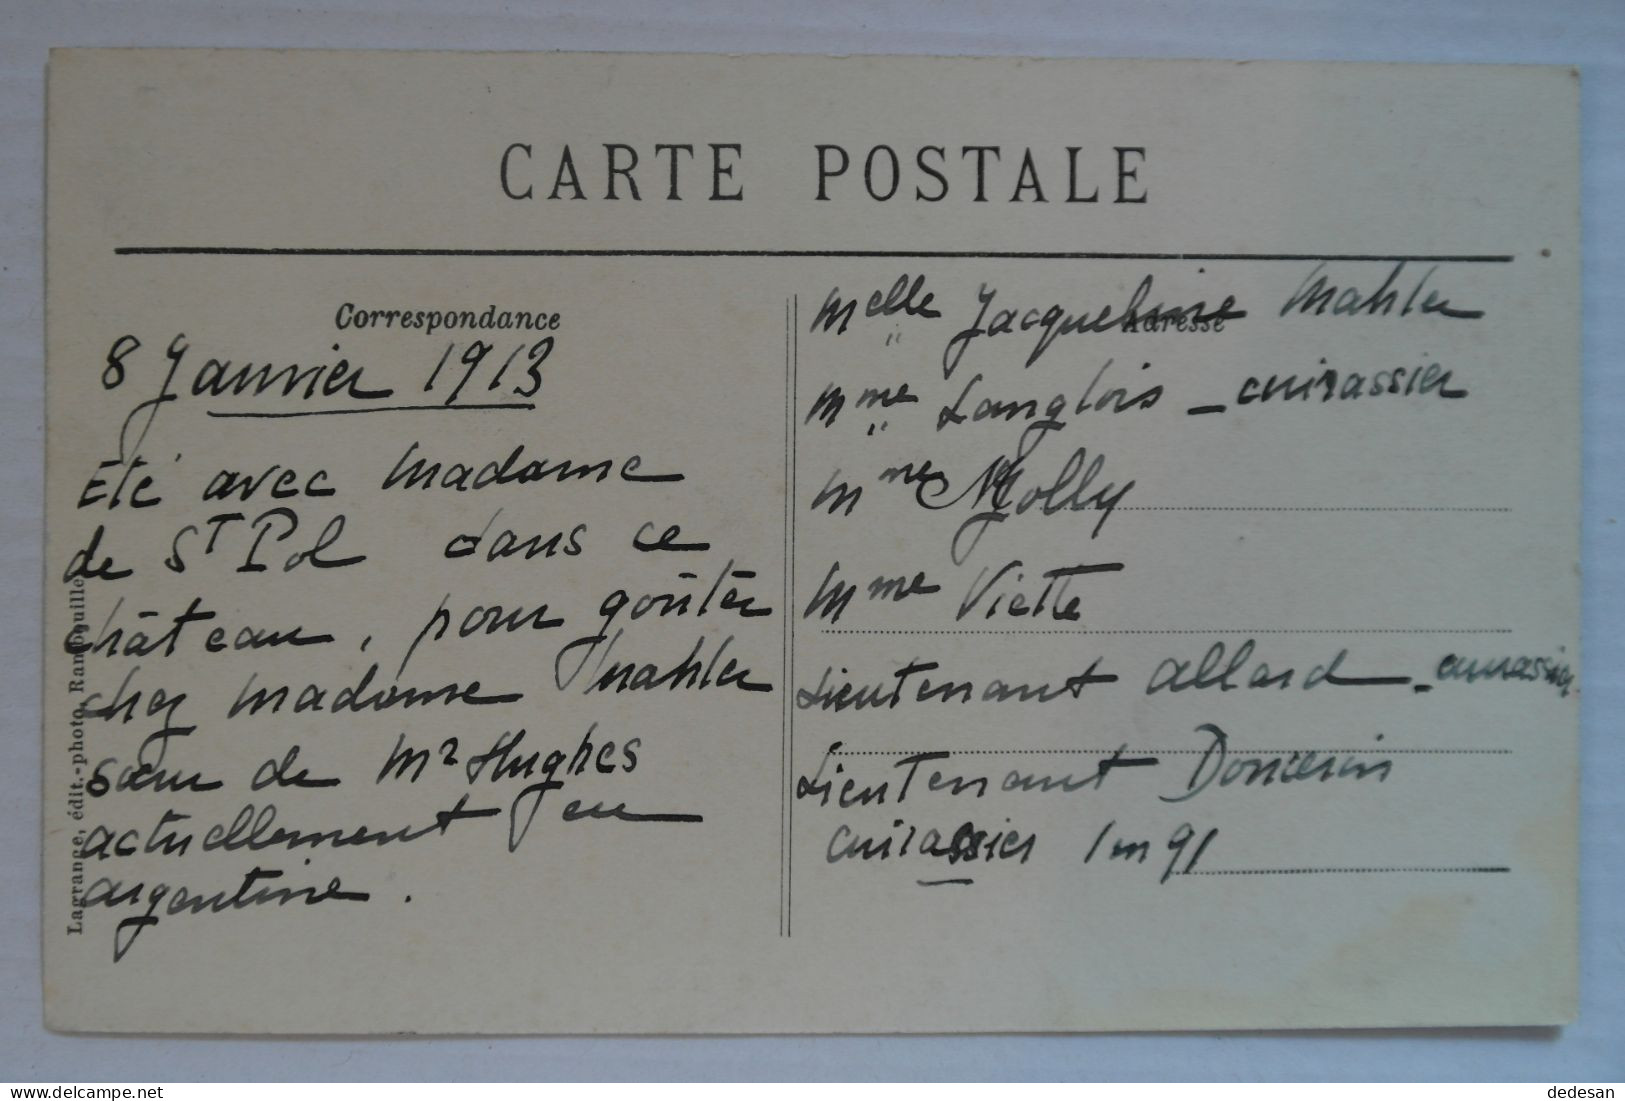 CARTE POSTALE
Correspondance
8 Janvier 1913
Eté avec Madame
de St Pol dans ce
château, pour goûter
chez Madame Mahler
sœur de Mr Hughes
actuellement en
argentine.
Lagrange, édit.-photo, Rambouillet
Adresse
Melle Jacqueline Mahler
Mme Langlois - cuirassier
Mme Molly
Mme Viette
Lieutenant Allard - cuirassier
Lieutenant
cuirassier
dedesan